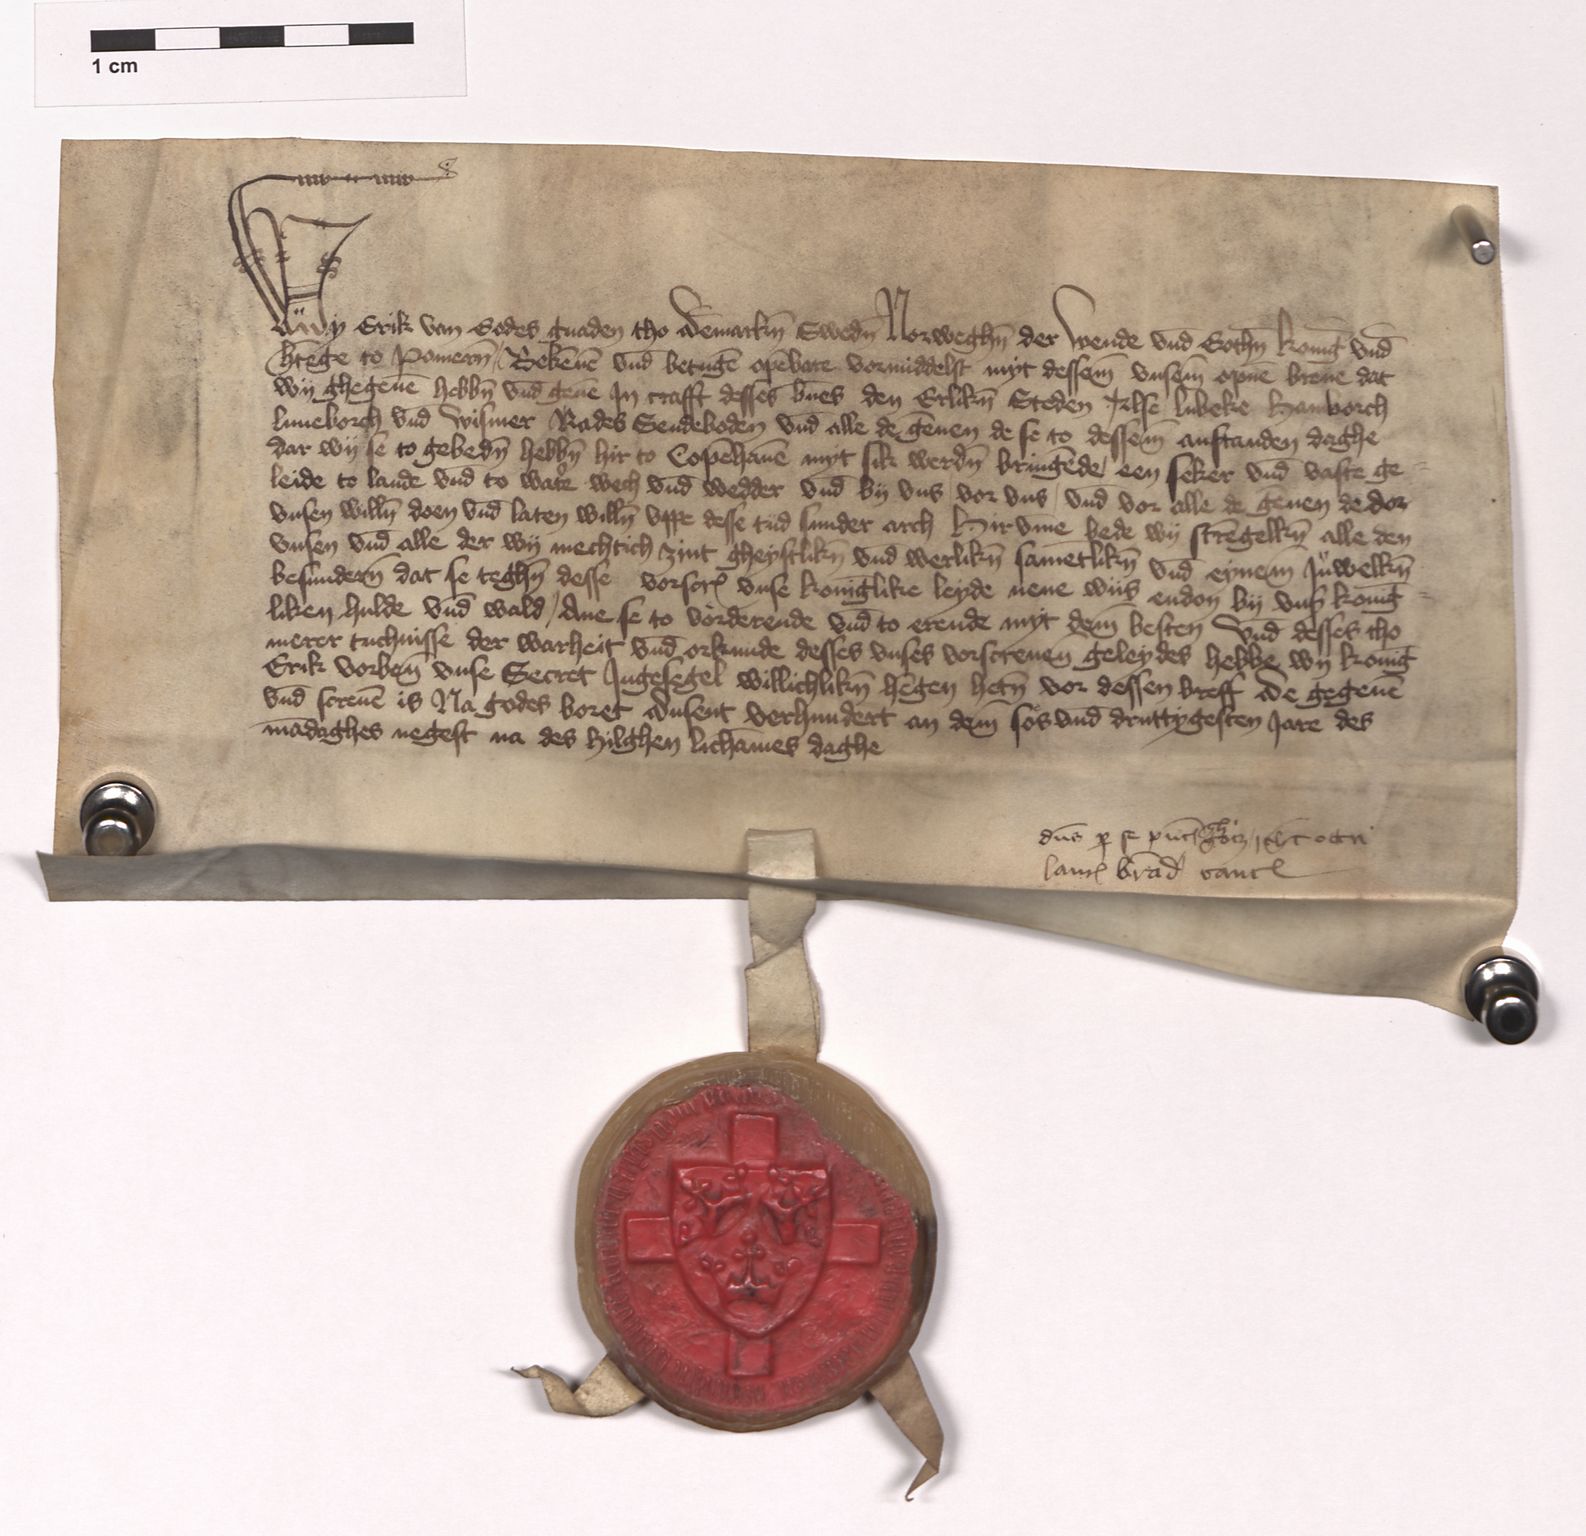 1 cm
Wij Erik van Godes gnaden tho Dēmarkn̄ Swedn̄ Norweghn̄ der Wende vn̄d Gothn̄ konīg vn̄d
h̄tege to Pomern̄ / Bekēnē vn̄d betugē opēbare vormiddelst myt dessem̄ vnsem̄ opne breue dat
wij ghegeuē hebbn̄ vn̄d geuē In crafft desses b̄ues den Erlikn̄ Steden Alse lubeke Hamborch
luneborch vn̄d Wismer Rades Sendeboden vn̄d alle de gēnen de se to dessem̄ anstanden daghe
dar wij se to gebedn̄ hebbn̄ hir to Copēhauē myt sik werdn̄ bringēde / een seker vn̄d vaste ge
leide to lande vn̄d to watͤr wech vn̄d wedder vn̄d bij vns / vor vns / vn̄d vor alle de gēnen de dor
vnsen willn̄ doen vn̄d laten willn̄ vppe desse tijd sunder arch Hir vme bede wij strēgelkn̄ alle den
vnsen vn̄d alle der wij mechtich zint gheystlikn̄ vn̄d werlikn̄ sametlikn̄ vn̄d eynem̄ Juwelkn̄
besundern̄ dat se teghn̄ desse vorscr̄ vnse koniglike leyde nene wijs endon bij vnsͬ konīg
liken hulde vn̄d wald / Ane se to vorderende vn̄d to erende myt dem̄ besten Vn̄d desses tho
merer tuchnisse der warheit vn̄d orkunde desses vnses vorscreuen geleydes hebbe wij konīg
Erik vorben̄ vnse Secret Ingesegel willichlikn̄ hēgen hetn̄ vor dessen breff De gegeuē
vn̄d screuē is Na godes boret Dusent verhundert an dem̄ sos vn̄d druttygesten Jare des
mādaghes negest na des hilghen lichāmes daghe
dn̄s ꝑ se
laur̄ brād canc̄